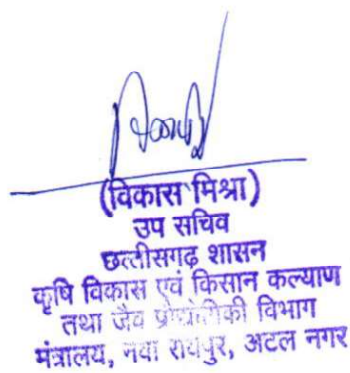 (विकास मिश्रा)
उप सचिव
छत्तीसगढ़ शासन
कृषि विकास एवं किसान कल्याण
तथा जैव प्रौद्योगिकी विभाग
मंत्रालय, नवा रायपुर, अटल नगर